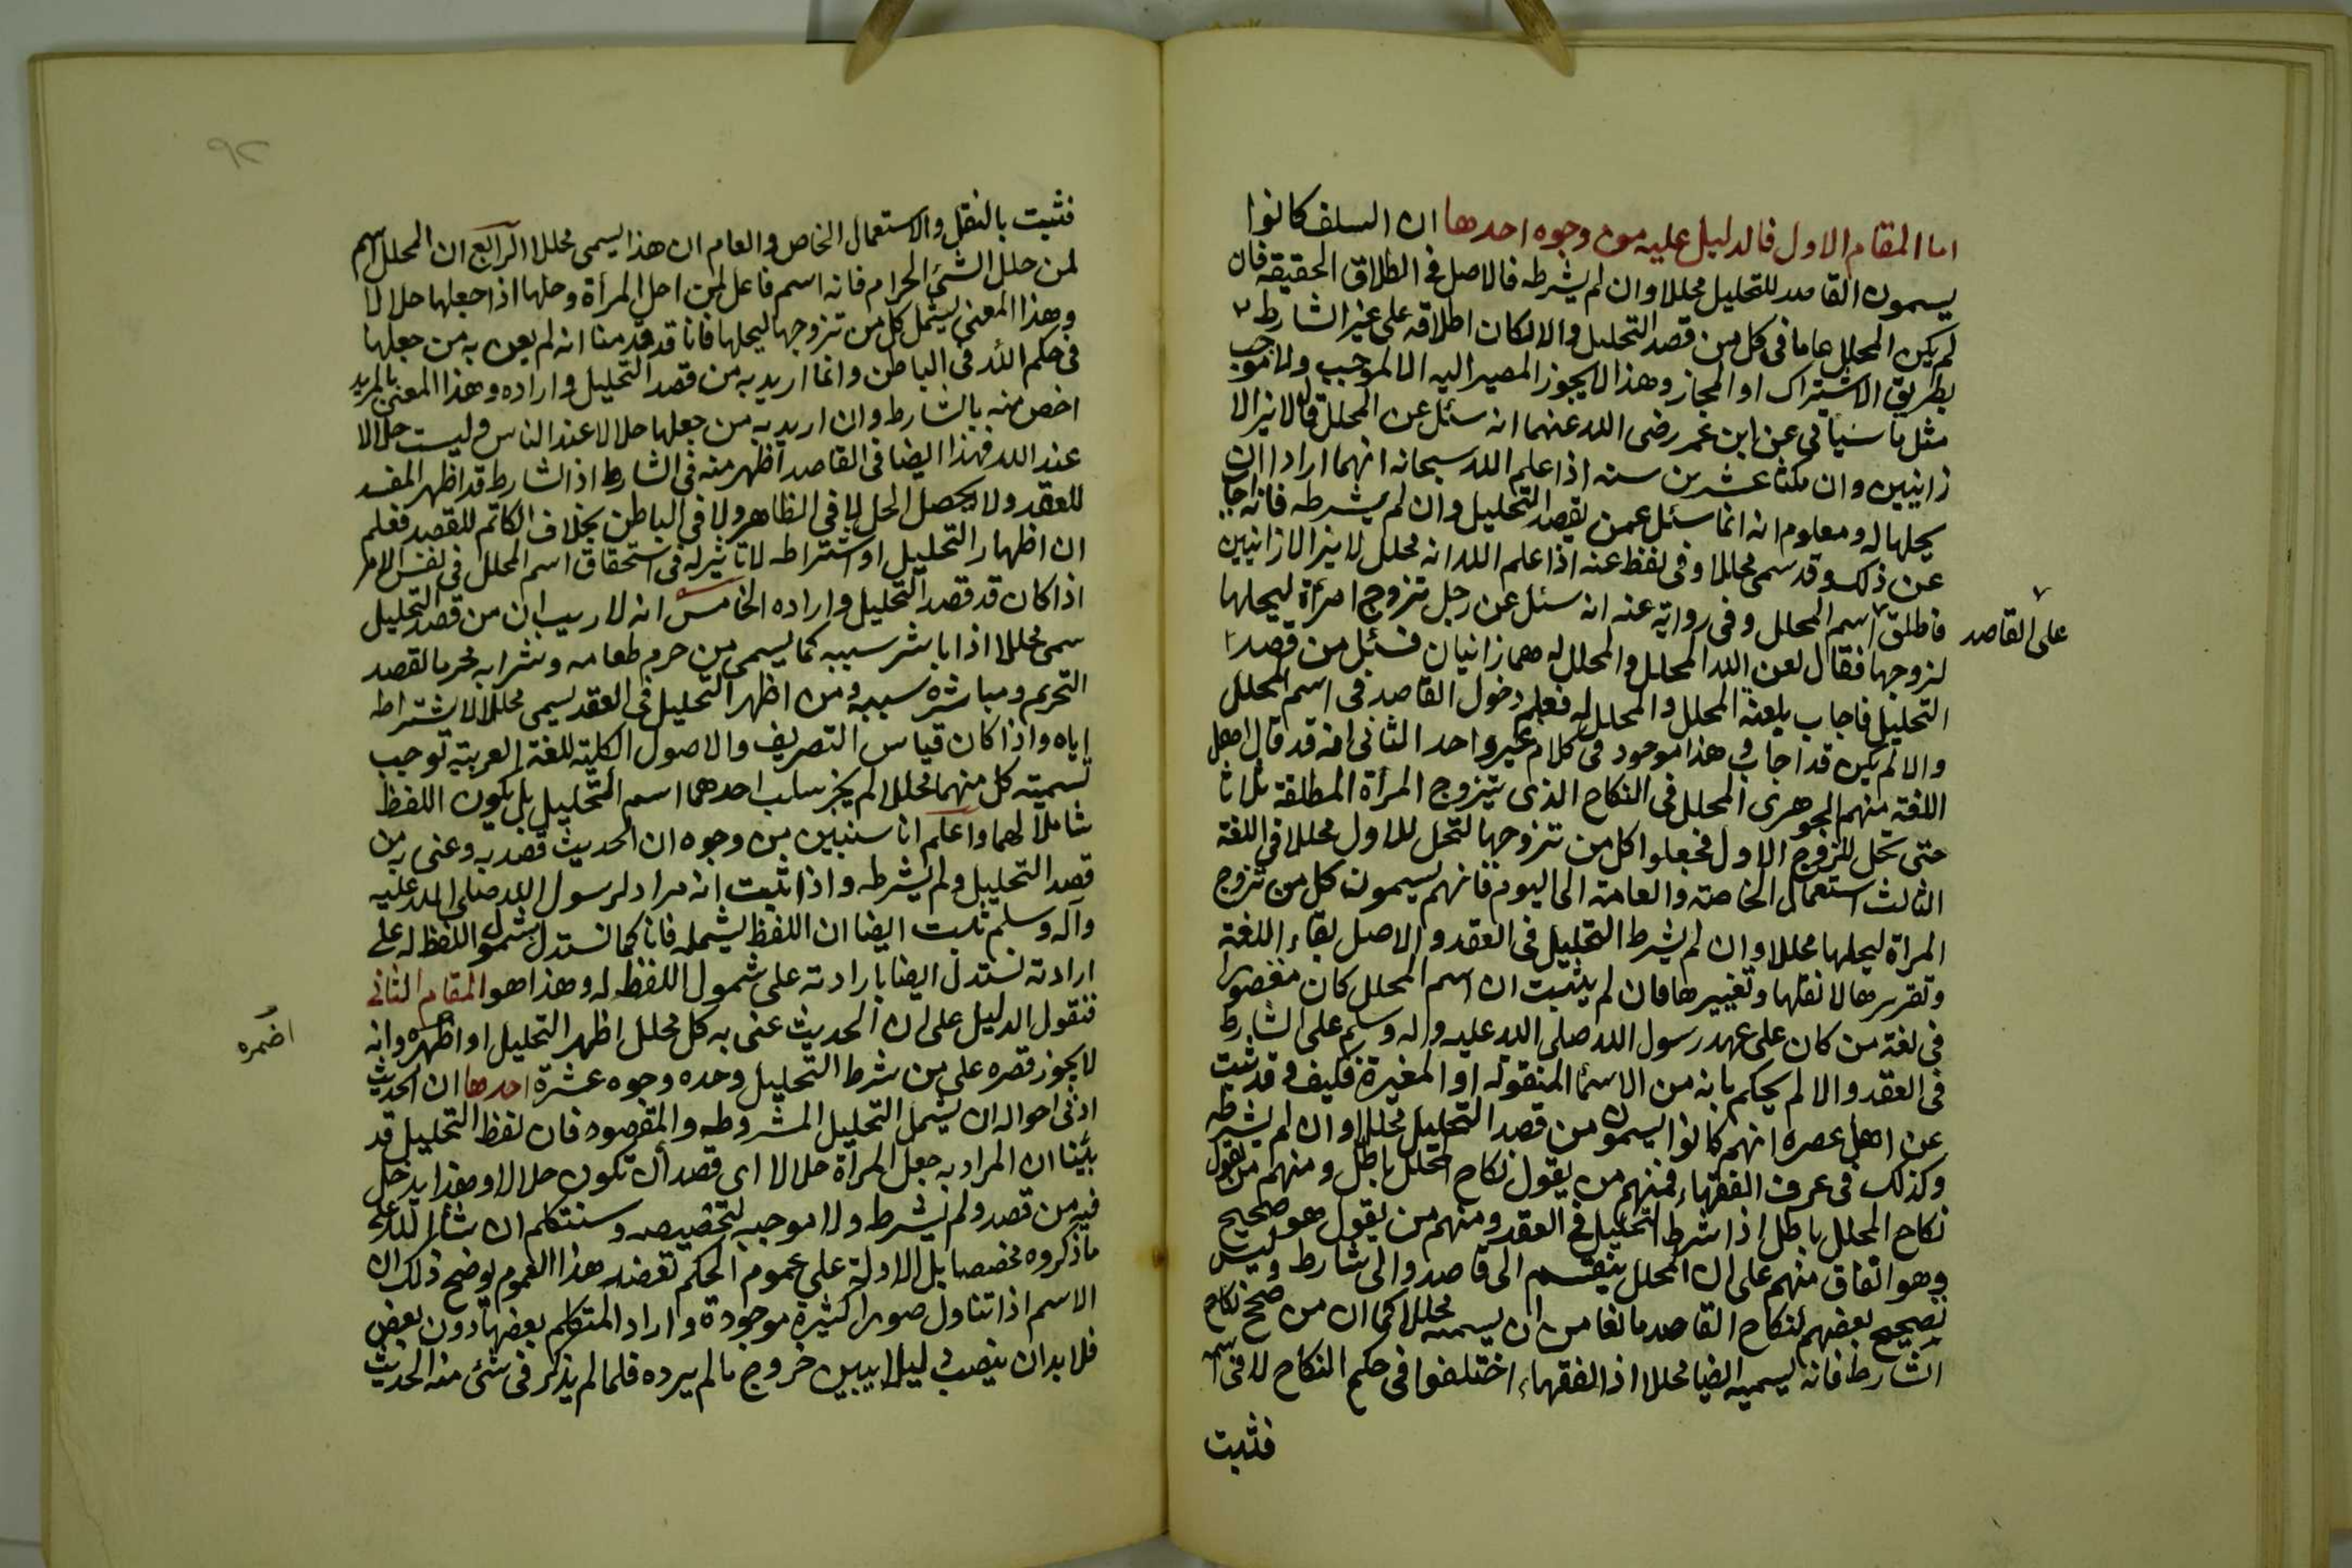 اما المقام الاول فالدليل عليه من وجوه احدها ان السلف كانوا
يسمون القاصد للتحليل محللا وان لم يشرطه فالاصل في اطلاق الحقيقة فان
لم يكن المحلل عاما في كل من قصد التحليل والا لكان اطلاقه على غير الشارط
بطريق الاشتراك او المجاز وهذا لا يجوز المصير اليه الا لموجب ولا موجب
مثل ما سياتي عن ابن عمر رضى الله عنهما انه سئل عن المحلل قال لا يزالا
زانيين وان مكثا عشرين سنه اذا علم الله سبحانه انهما ارادا ان
يحلها له ومعلوم انه انما سئل عمن يقصد التحليل وان لم يشرطه فانه اجاب
عن ذلك وقد سمى محللا وفي لفظ عنه اذا علم الله انه محلل لا يزالا زانيين
فاطلق اسم المحلل وفى رواية عنه انه سئل عن رجل تزوج امرأة ليحلها
على القاصد
لزوجها فقال لعن الله المحلل والمحلل له هما زانيان فسئل من قصد
التحليل فاجاب بلعنة المحلل والمحلل له فعلم دخول القاصد فى اسم المحلل
والا لم يكن قد اجاب وهذا موجود في كلام غير واحد الثانى انه قد قال اهل
اللغة منهم الجوهرى المحلل في النكاح الذى يتزوج المرأة المطلقة ثلاثا
حتى تحل للزوج الاول فجعلوا كل من تزوجها لتحل للاول محللا في اللغة
الثالث استعمال الخاصة والعامة الى اليوم فانهم يسمون كل من تزوج
المرأة ليحلها محللا وان لم يشرط التحليل فى العقد والاصل بقاء اللغة
وتقريرها لا نقلها وتغييرها فان لم يثبت ان اسم المحلل كان مقصورا
فى لغة من كان على عهد رسول الله صلى الله عليه واله وسلم على الشارط
فى العقد والا لم يحكم بانه من الاسما المنقوله او المغيرة فكيف وقد ثبت
عن اهل عصره انهم كانوا يسمون من قصد التحليل محللا وان لم يشرطه
وكذلك فى عرف الفقهاء فمنهم من يقول نكاح المحلل باطل ومنهم من يقول
نكاح المحلل باطل اذا شرط التحليل في العقد ومنهم من يقول هو صحيح
وهو اتفاق منهم على ان المحلل ينقسم الى قاصد والى شارط وليس
تصحيح بعضهم لنكاح القاصد مانعا من ان يسميه محللا كما ان من صحح نكاح
الشارط فانه يسميه ايضا محللا اذ الفقهاء اختلفوا فى حكم النكاح لا فى اسمه
فثبت
فثبت بالنقل والاستعمال الخاص والعام ان هذا يسمى محللا الرابع ان المحلل اسم
لمن حلل الشئ الحرام فانه اسم فاعل لمن احل المرأة وحلها اذا جعلها حلالا
وهذا المعنى يشمل كل من تزوجها ليحلها فانا قد قدمنا انه لم يعن به من جعلها
فى حكم الله فى الباطن وانما اريد به من قصد التحليل واراده وهذا المعنى بالمريد
اخص منه بالشارط وان اريد به من جعلها حلالا عند الناس وليست حلالا
عند الله فهذا ايضا فى القاصد اظهر منه فى الشارط اذ الشارط قد اظهر المفسد
للعقد ولا يحصل الحل لا فى الظاهر ولا فى الباطن بخلاف الكاتم للقصد فعلم
ان اظهار التحليل او اشتراطه لا تاثير له فى استحقاق اسم المحلل في نفس الامر
اذا كان قد قصد التحليل واراده الخامس انه لا ريب ان من قصد التحليل
سمى محللا اذا باشر سببه كما يسمى من حرم طعامه وشرابه محرما لقصد
التحريم ومباشرة سببه ومن اظهر التحليل فى العقد يسمى محللا لاشتراطه
اياه واذا كان قياس التصريف والاصول الكلية للغة العربية توجب
تسمية كل منهما محللا لم يجز سلب احدهما اسم التحليل بل يكون اللفظ
شاملا لهما واعلم انا سنبين من وجوه ان الحديث قصد به وعنى به من
قصد التحليل ولم يشرطه واذا ثبت انه مراد لرسول الله صلى الله عليه
وآله وسلم ثبت ايضا ان اللفظ يشمله فانا كما نستدل بشمول اللفظ له على
ارادته نستدل ايضا بارادته على شمول اللفظ له وهذا هو المقام الثانى
فنقول الدليل على ان الحديث عنى به كل محلل اظهر التحليل او اظهره وانه
اضمره
لا يجوز قصره على من شرط التحليل وحده وجوه عشرة احدها ان الحديث
ادنى احواله ان يشمل التحليل المشروطه والمقصود فان لفظ التحليل قد
بينا ان المراد به جعل المرأة حلالا اى قصد ان تكون حلالا وهذا يدخل
فيه من قصد ولم يشرط ولا موجب لتخصيصه وسنتكلم ان شاء الله على
ما ذكروه مخصصا بل الادلة على عموم الحكم تعضد هذا العموم يوضح ذلك ان
الاسم اذا تناول صورا كثيرة موجودة واراد المتكلم بعضها دون بعض
فلا بد ان ينصب دليلا يبين خروج ما لم يرده فلما لم يذكر فى شئ من الحديث